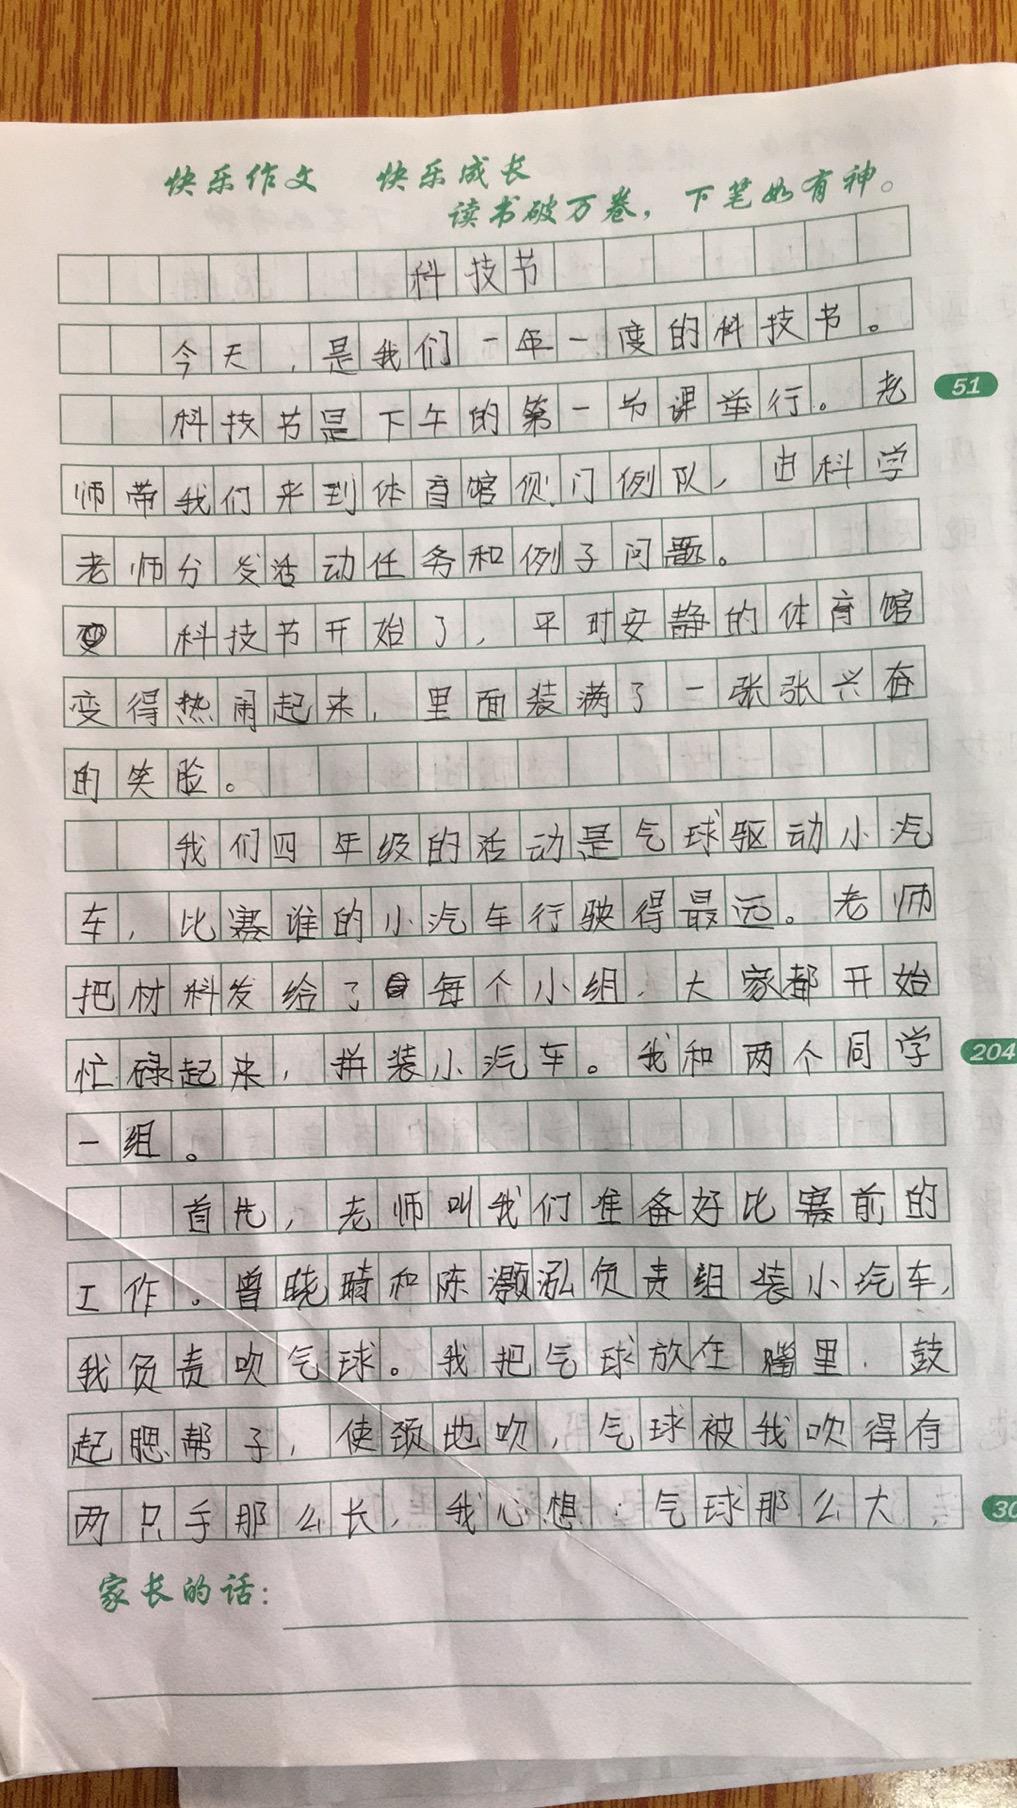 快乐作文 快乐成长
读书破万卷，下笔如有神。
科技节
今天，是我们一年一度的科技节。
科技节是下午的第一节课举行。老
51
师带我们来到体育馆侧门例队，由科学
老师分发活动任务和例子问题。
科技节开始了，平时安静的体育馆
变得热闹起来，里面装满了一张张兴奋
的笑脸。
我们四年级的活动是气球驱动小汽
车，比赛谁的小汽车行驶得最远。老师
把材料发给了每个小组，大家都开始
忙碌起来，拼装小汽车。我和两个同学
204
一组。
首先，老师叫我们准备好比赛前的
工作。曾晓晴和陈灏泓负责组装小汽车，
我负责吹气球。我把气球放在嘴里，鼓
起腮帮子，使颈地吹，气球被我吹得有
两只手那么长，我心想：气球那么大，
30
家长的话：